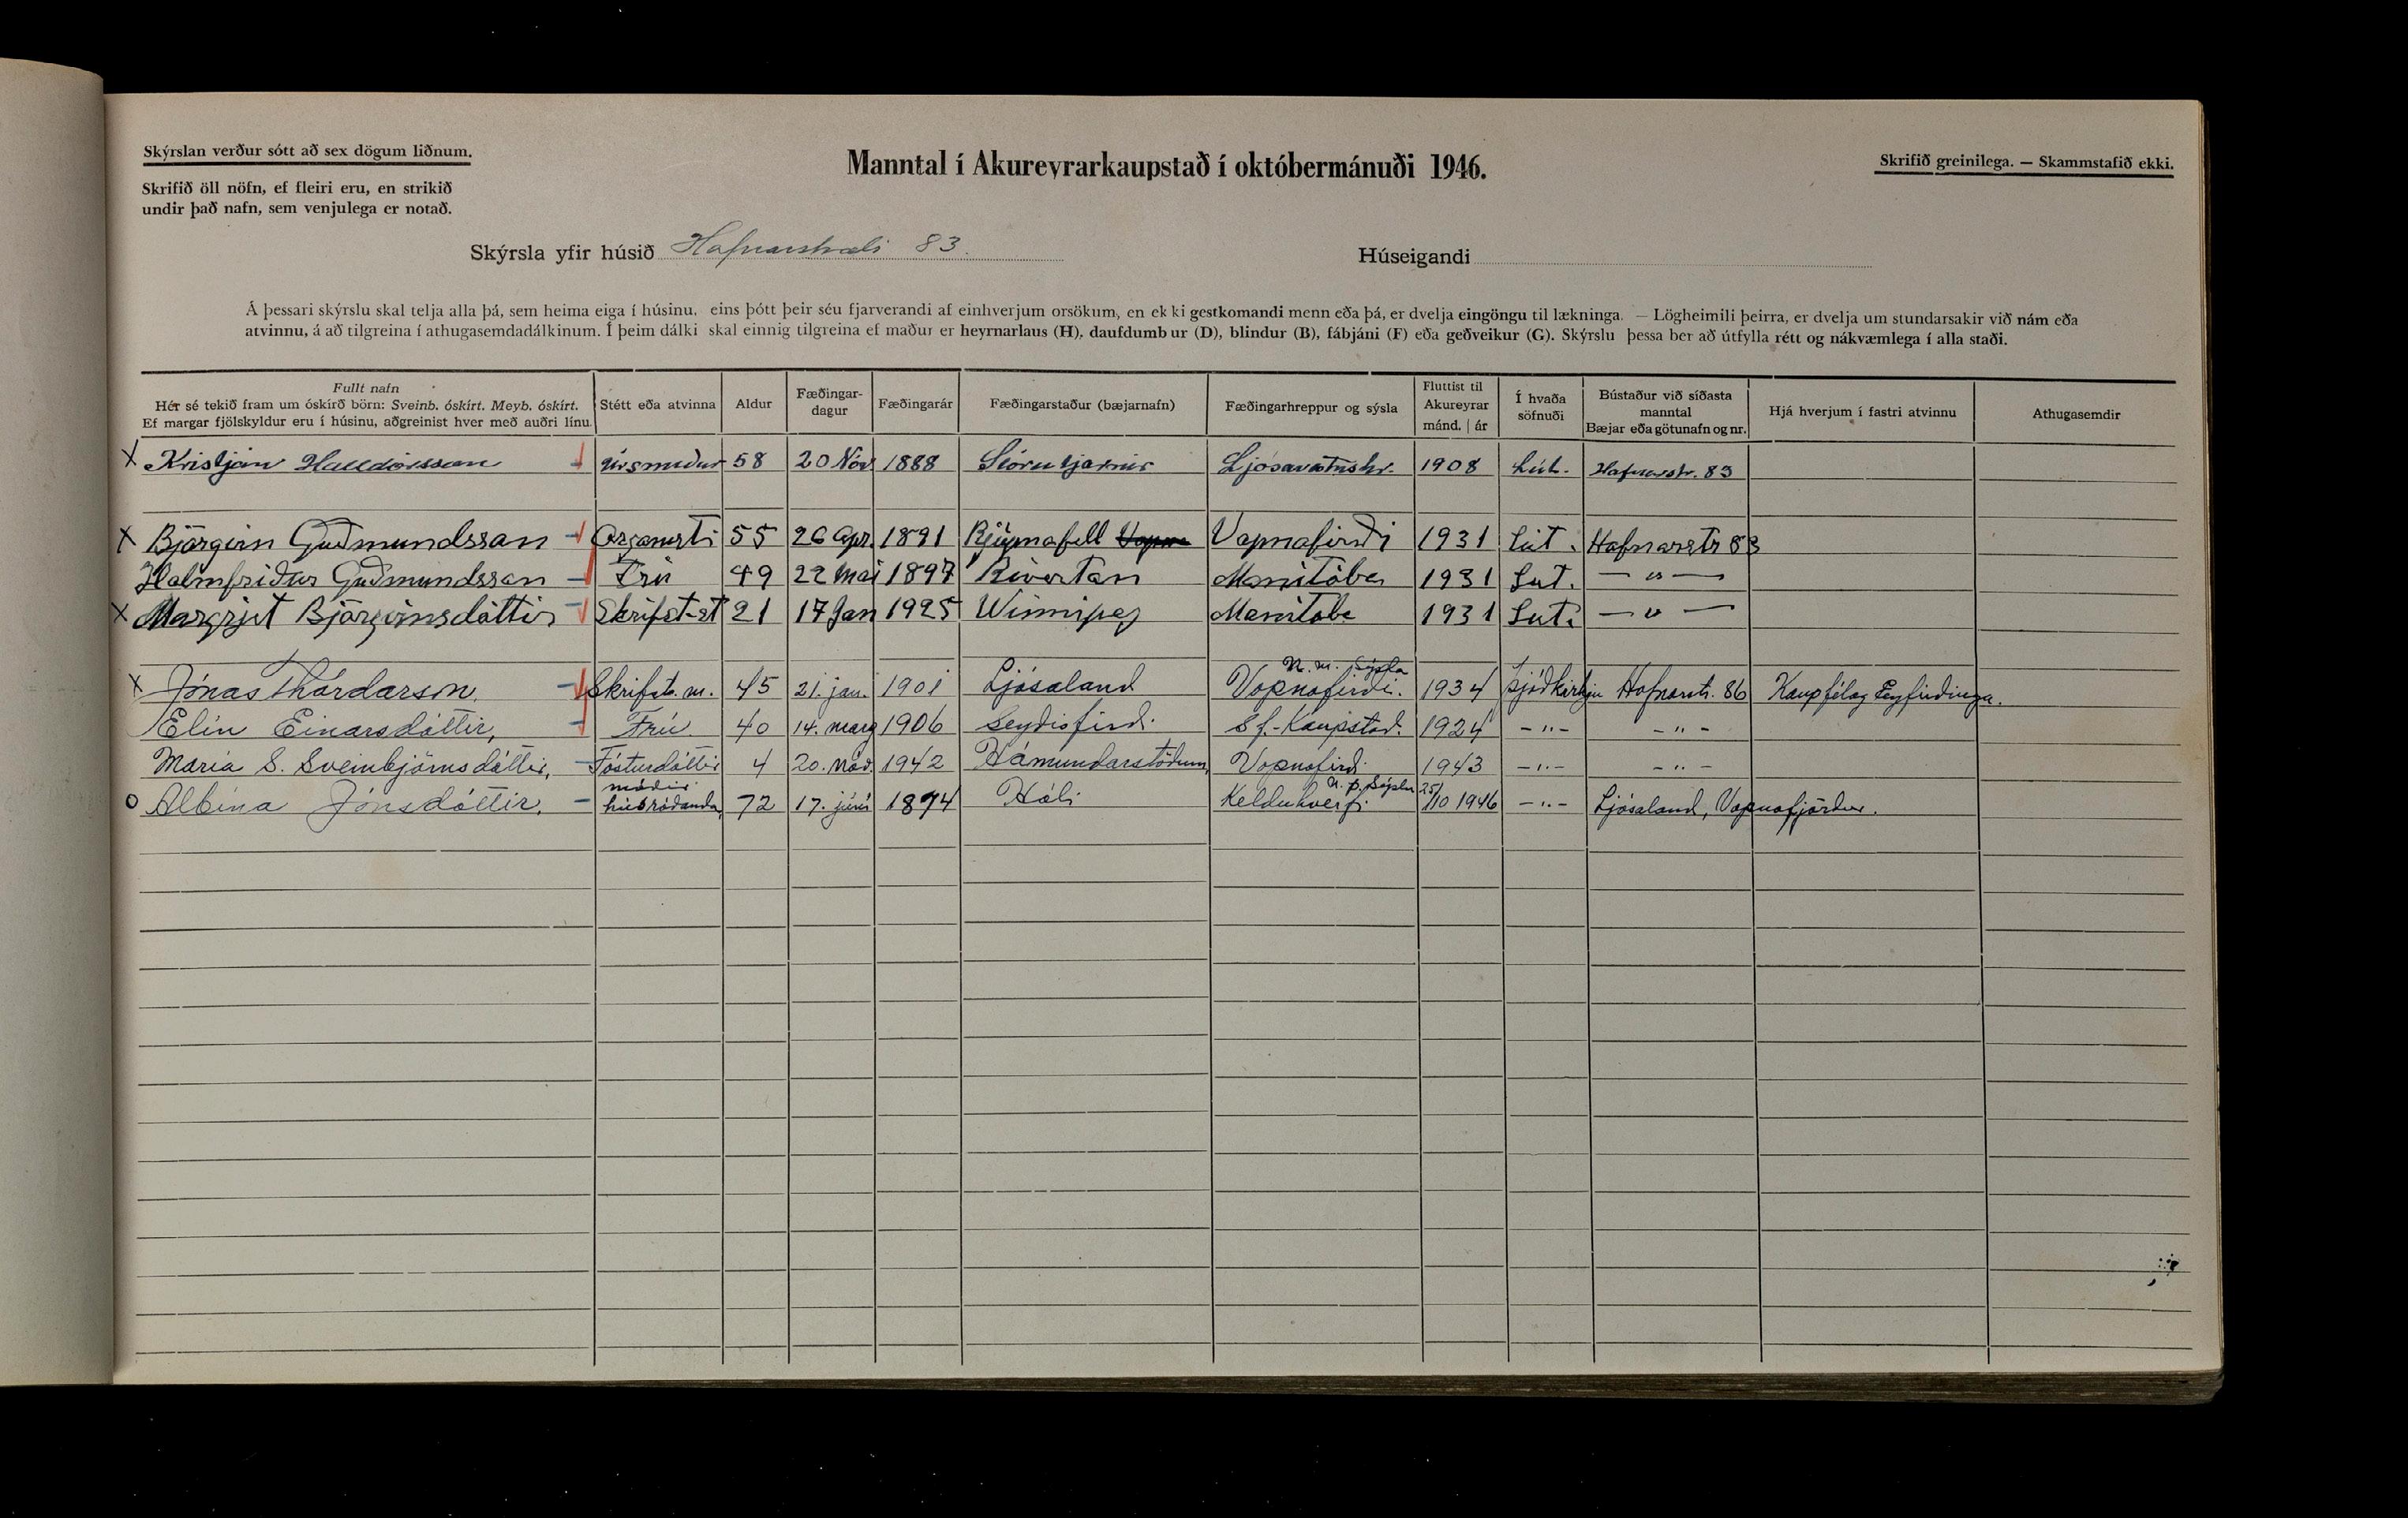 Skýrslan verður sótt að sex dögum liðnum.
Skrifið öll nöfn, ef fleiri eru, en strikið
undir það nafn, sem venjulega er notað.
Manntal í Akureyrarkaupstað í októbermánuði 1946.
Skrifið greinilega. — Skammstafið ekki.
Skýrsla yfir húsið Hafnarstræti 83.
Húseigandi
Á þessari skýrslu skal telja alla þá, sem heima eiga í húsinu, eins þótt þeir séu fjarverandi af einhverjum orsökum, en ek ki gestkomandi menn eða þá, er dvelja eingöngu til lækninga. — Lögheimili þeirra, er dvelja um stundarsakir við nám eða
atvinnu, á að tilgreina í athugasemdadálkinum. Í þeim dálki skal einnig tilgreina ef maður er heyrnarlaus (H), daufdumb ur (D), blindur (B), fábjáni (F) eða geðveikur (G). Skýrslu þessa ber að útfylla rétt og nákvæmlega í alla staði.
Fullt nafn
Hér sé tekið fram um óskírð börn: Sveinb. óskírt. Meyb. óskírt.
Ef margar fjölskyldur eru í húsinu, aðgreinist hver með auðri línu.
Stétt eða atvinna
Aldur
Fæðingar-
dagur
Fæðingarár
Fæðingarstaður (bæjarnafn)
Fæðingarhreppur og sýsla
Fluttist til
Akureyrar
mánd. | ár
Í hvaða
söfnuði
Bústaður við síðasta
manntal
Bæjar eða götunafn og nr.
Hjá hverjum í fastri atvinnu
Athugasemdir
X Kristján Halldórsson úrsmiður 58 20 Nóv 1888 Stórutjarnir Ljósavatnshr. 1908 Lút. Hafnarstr. 83
X Björgvin Guðmundsson 55 26 Apr. 1891 Vopnafirði 1931 Lút. Hafnarstr 83
Halmfriður Guðmundsson Frú 49 22 Mai 1897 Riverton Manitóba 1931 Lut. — " —
X Margrjet Björgvinsdóttir Skrifst-st 21 17 Jan 1925 Winnipeg Manitoba 1931 Lut. — " —
N. M. Sýsla
X Jónas Thórdarson Skrifst. m. 45 21. jan. 1901 Ljósaland Vopnafirði. 1934 Þjóðkirkju Hafnarstr. 86 Kaupfélag Eyfirðinga.
Elín Einarsdóttir, Frú. 40 14. marz 1906 Seyðisfirði. Sf.-Kaupstað. 1924 - " - - " -
María S. Sveinbjörnsdóttir, Fósturdóttir 4 20. nóv. 1942 Hámundarstöðum, Vopnafirði 1943 - " - - " -
móðir N. Þ. Sýslu 25/
O Albína Jónsdóttir. húsráðanda, 72 17. júní 1874 Hóli Kelduhverfi. /10 1946 - " - Ljósaland, Vopnafjörður.